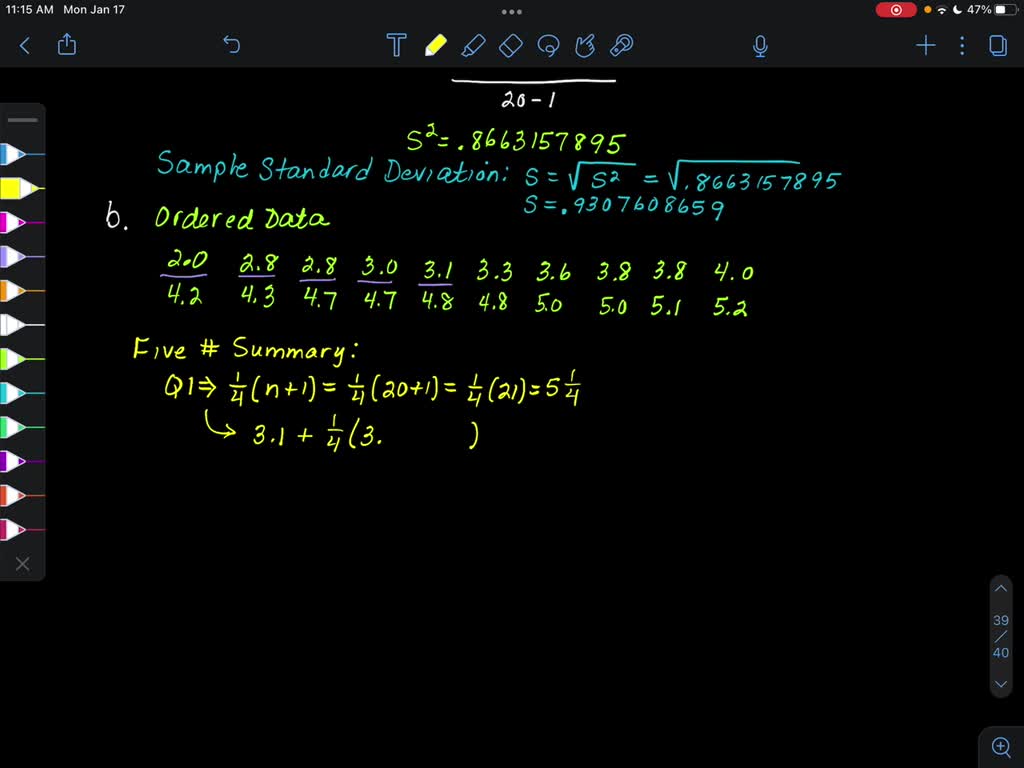 11:15 AM Mon Jan 17
47%
T
20-1
S² = .8663157895
Sample Standard Deviation: S = √S² = √.8663157895
S = .9307608659
b. Ordered Data
2.0 2.8 2.8 3.0 3.1 3.3 3.6 3.8 3.8 4.0
4.2 4.3 4.7 4.7 4.8 4.8 5.0 5.0 5.1 5.2
Five # Summary:
Q1 ⇒ 1/4 (n+1) = 1/4 (20+1) = 1/4 (21) = 5 1/4
↳ 3.1 + 1/4 (3. )
39
/
40